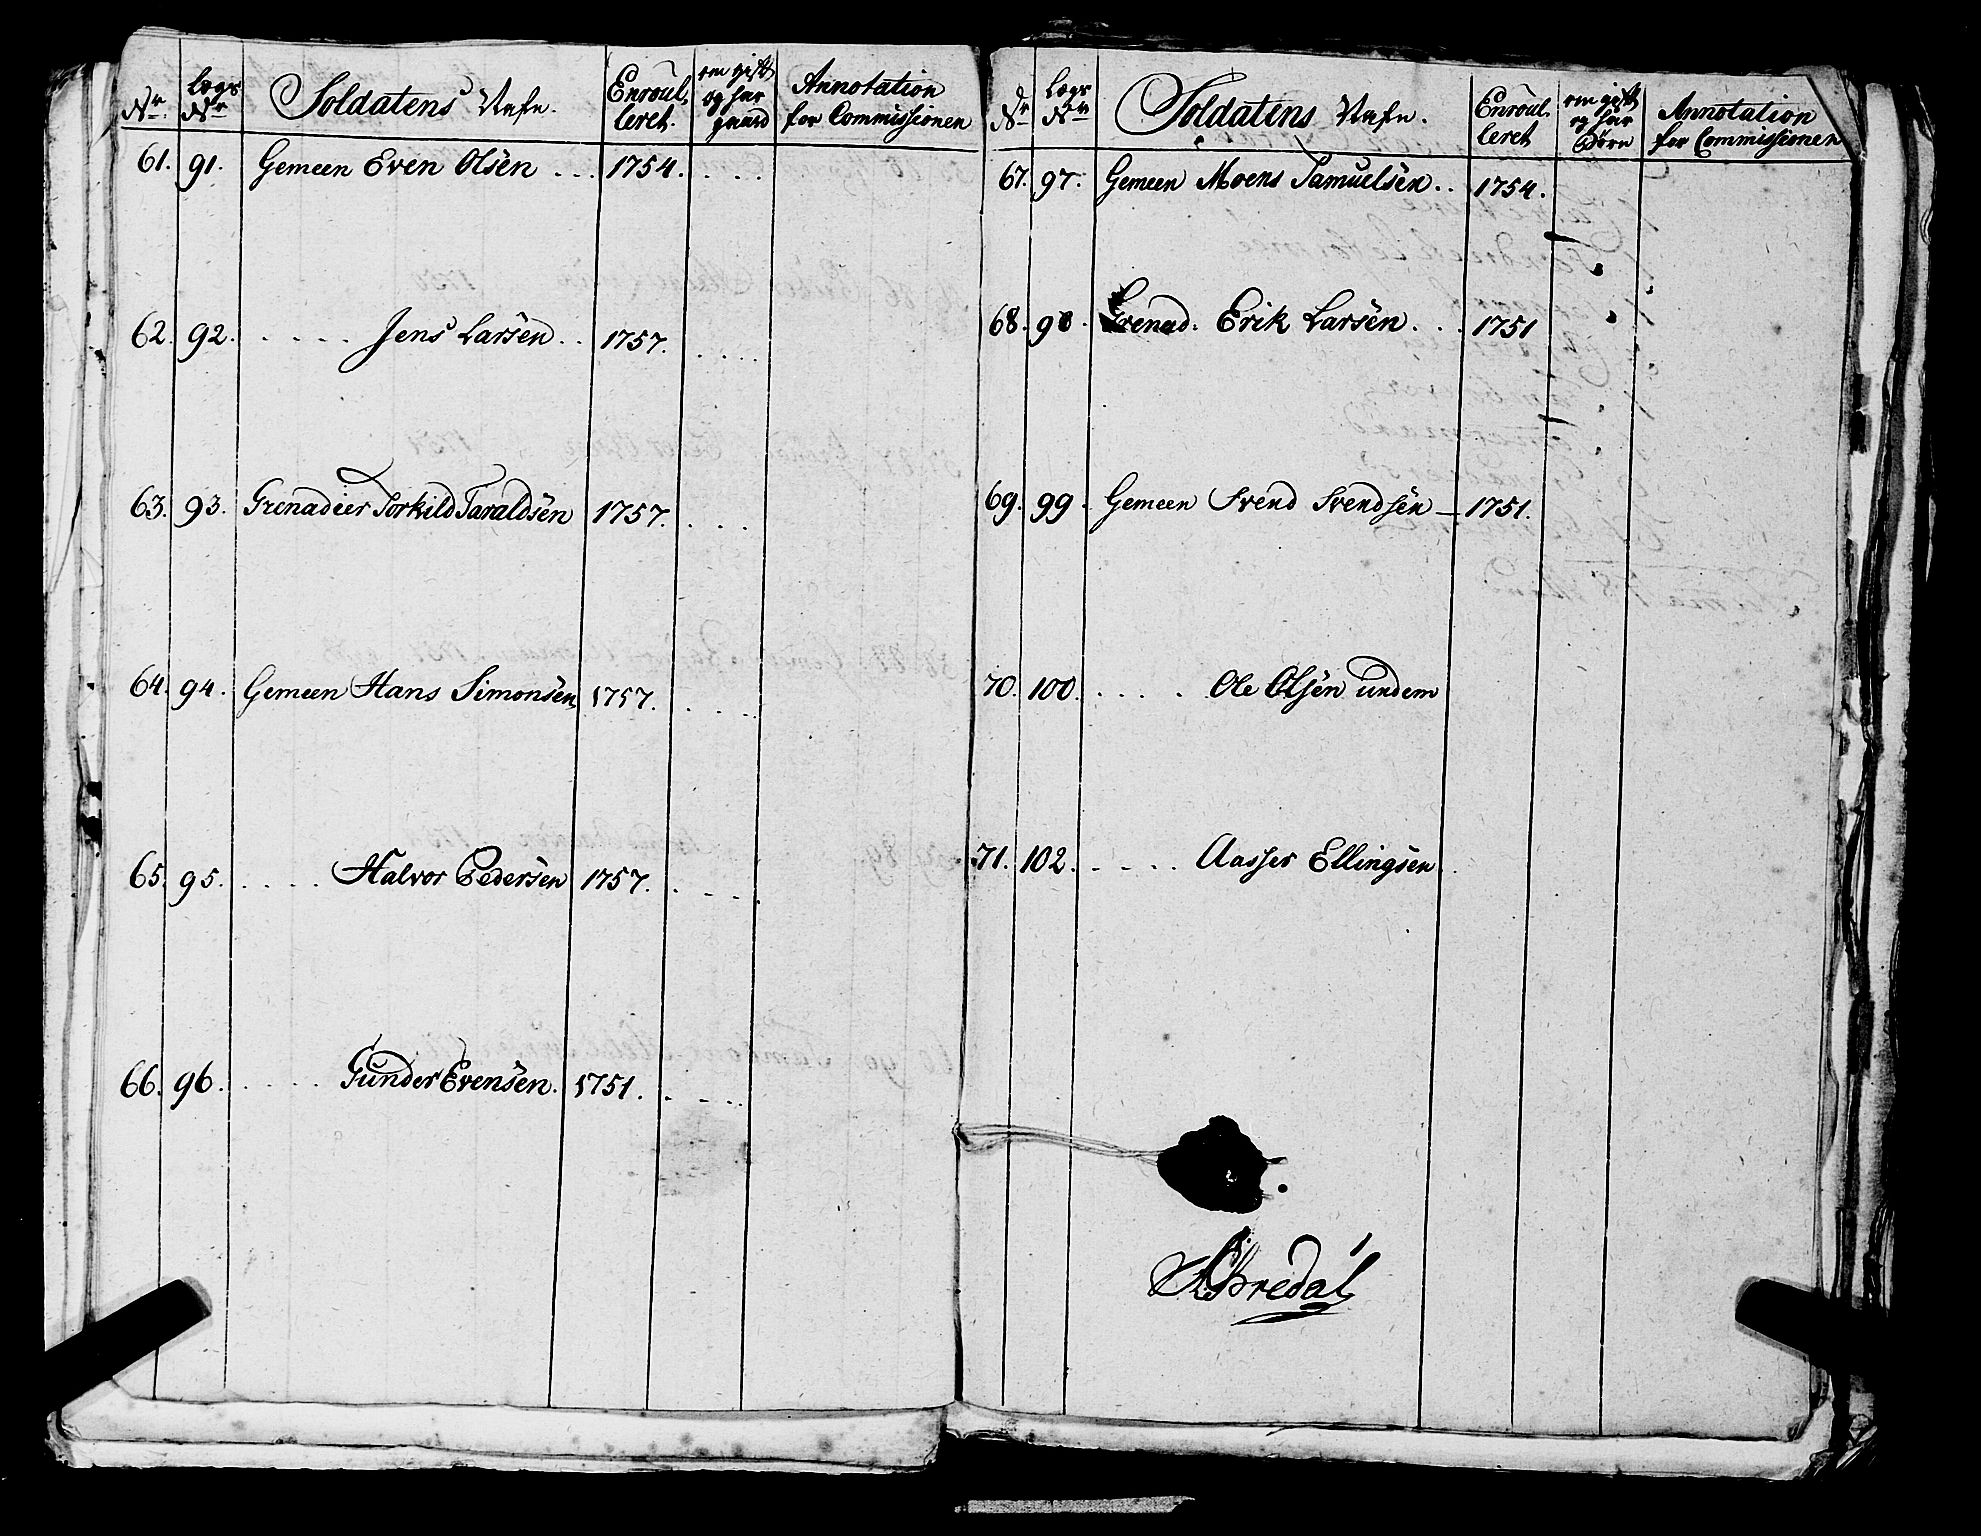 Nr. Lægs Nr Soldatens Nafn. Enroul, leret. om gift og har gaard Annotation for Commissionen
61. 91. Gemeen Even Olsen ... 1754. ....
62. 92. ..... Jens Larsen .. 1757. ....
63. 93. Grenadier Torkild Taraldsen 1757. ...
64. 94. Gemeen Hans Simonsen, 1757. ....
65. 95. .... Halvor Pedersen 1757. ...
66. 96. .... Gunder Evensen. 1751. ....
Nr Lægs Nr Soldatens Nafn. Enroul. leret om gift og har Børn Annotation for Commissionen
67. 97. Gemeen Moens Samuelsen .. 1754.
68. 98. Grenad: Erik Larsen ... 1751
69. 99. Gemeen Svend Svendsen — 1751.
70. 100. ..... Ole Olsen undem
71. 102. .... Aasser Ellingsen
Bredal